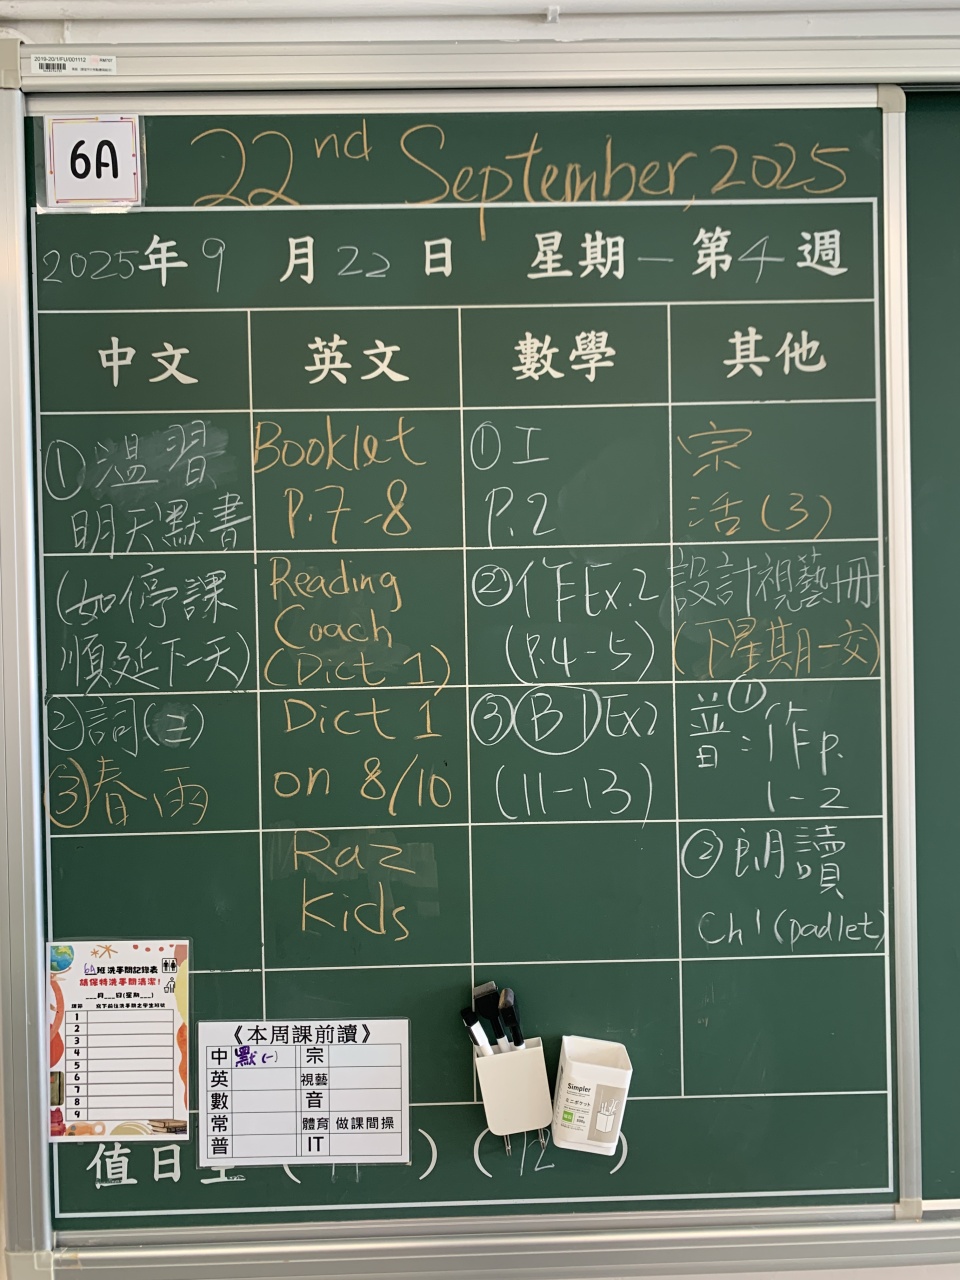 2019-20/1/FU/001112
6A
22nd September, 2025
2025年9月22日 星期一 第4週
中文 英文 數學 其他
①溫習
明天默書
(如停課
順延下一天)
②詞(三)
③春雨
Booklet
P.7-8
Reading
Coach
(Dict 1)
Dict 1
on 8/10
Raz
Kids
①工
P.2
②作Ex.2
(P.4-5)
③B1 Ex2
(11-13)
宗
活(3)
設計視藝冊
(下星期一交)
普:①作p.
1-2
②朗讀
Ch1(padlet)
6A班洗手間記錄表
請保持洗手間清潔!
___月___日(星期___)
1
2
3
4
5
6
7
8
9
《本周課前讀》
中 默(一) 宗
英 視藝
數 音
常 體育 做課間操
普 IT
Simpler
ミニポケット
值日生 ( 11 ) ( 12 )